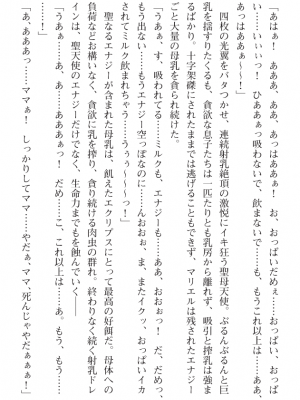 い……いぃぃっ！　ひあぁぁっ吸わないで、飲まないでぇ……も、もうこれ以上は……ああ、
あっはああぁぁ～っ！」
四枚の光翼をバタつかせ、連続射乳絶頂の激悦にイキ狂う聖母天使。ぷるんぷるんと巨
乳を揺すりたくるも、貪欲な息子たちは一匹たりとも乳房から離れず、吸引と搾乳は強ま
るばかり。十字架磔にされたままでは逃げることもできず、マリエルは残されたエナジー
ごと大量の母乳を貪られ続けた。
「うぁぁ、す、吸われてる……ミルクも、エナジーも……あぁ、おおぉっ！　だ、だめっ、
もう出ない……もうエナジー空っぽなのに……んおおぉ、ま、またイクッ、おっぱいイカ
されてミルク飲まれちゃう……うぅぅ～～～っ！」
聖なるエナジーが含まれた母乳は、飢えたエクリプスにとって最高の好餌だ。母体への
負荷などお構いなく、貪欲に乳を搾り、貪り続ける肉虫の群れ。終わりなく続く射乳ドレ
インは、聖天使のエナジーだけでなく、生命力までもを蝕んでいく――
「うあぁ……あ、あ……ああぁぁっ！　だめ……こ、これ以上は……あ。もう、もう……
……っ！」
「あ、あああっ……ママぁ！　しっかりしてママ……やだぁ、ママ、死んじゃやだぁぁぁ！」